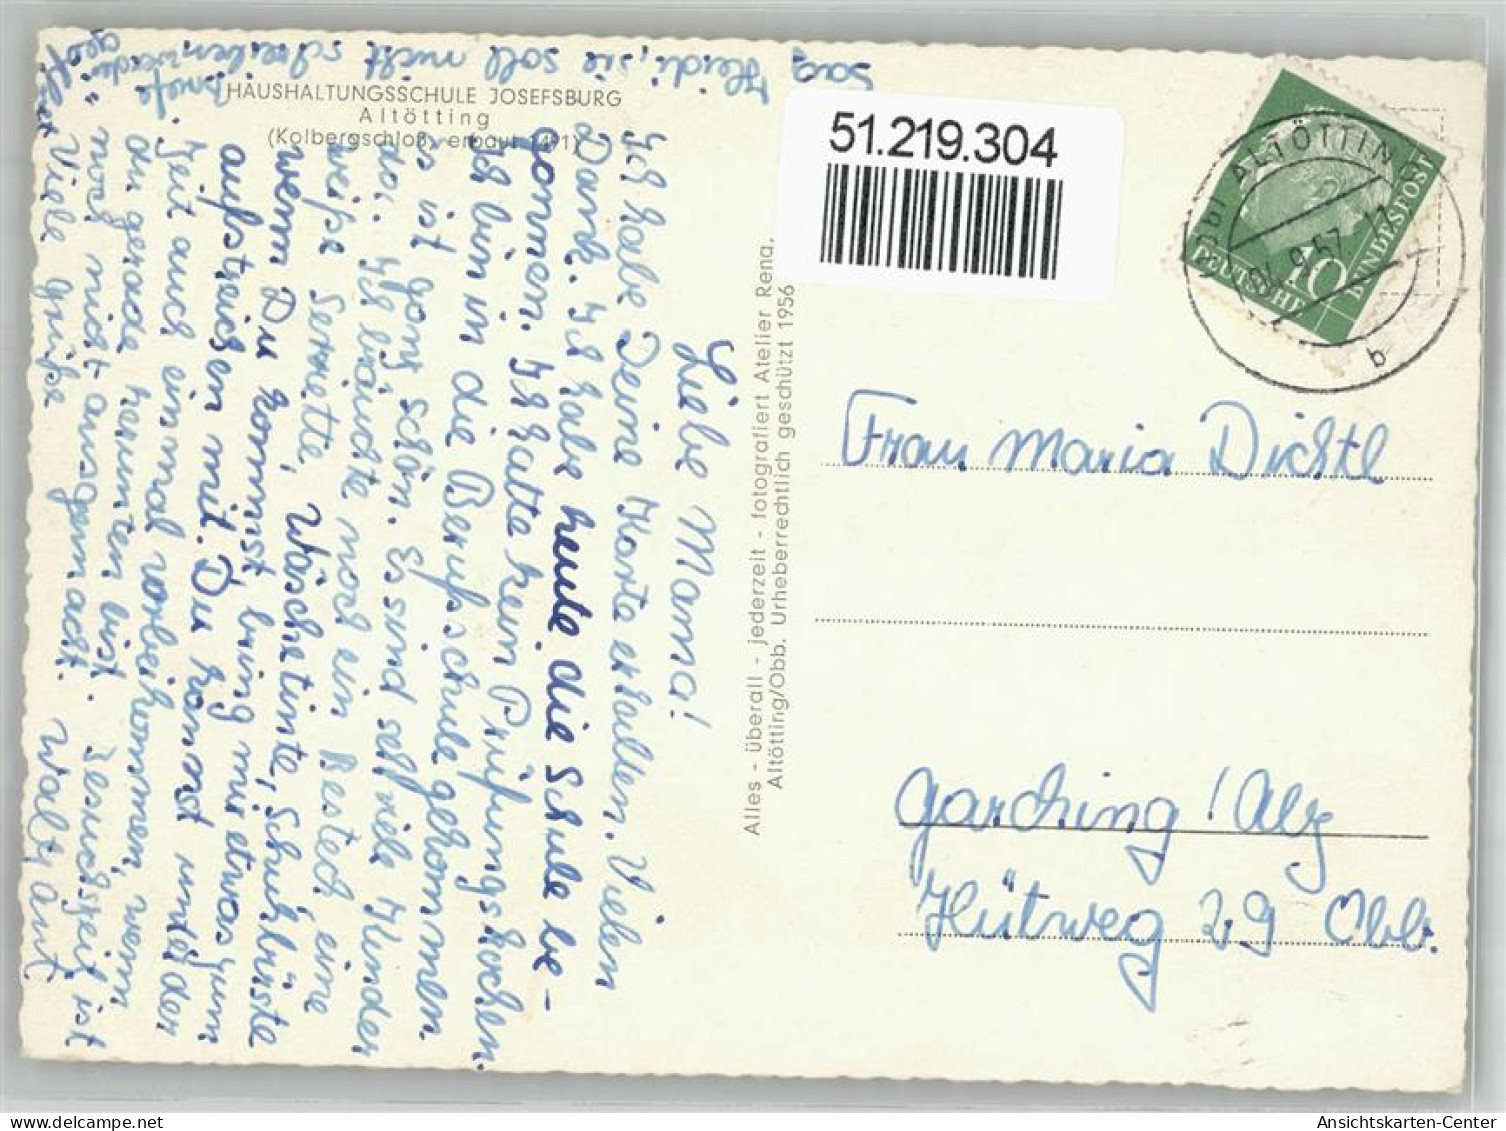 HAUSHALTUNGSSCHULE JOSEFSBURG
Altötting
(Kolbergschloß, erbaut 1491)
Liebe Mama!
Ich habe Deine Karte erhalten. Vielen
Dank. Ich habe heute die Schule be-
gonnen. Ich hatte kein Prüfungskochen.
Ich bin in die Berufsschule gekommen
es ist ganz schön. Es sind sehr viele Kinder
da. Ich bräuchte noch ein Besteck, eine
weiße Serviette, Wäschetinte, Schuhbürste
wenn Du kommst bring mir etwas zum
aufstreichen mit. Du kannst unter der
Zeit auch einmal vorbeikommen, wenn
du gerade herunten bist. Besuchszeit ist
noch nicht ausgemacht.
Viele Grüße Waltraut
Sag Heidi, sie soll nicht schreiben,
Briefe werden
Alles - überall - jederzeit - fotografiert Atelier Rena,
Altötting/Obb. Urheberrechtlich geschützt 1956
51.219.304
ALTÖTTING
9.57.11
b
DEUTSCHE
10
BUNDESPOST
Frau Maria Dichtl
Garching / Alz
Hütweg 29 Obb.
Ansichtskarten-Center